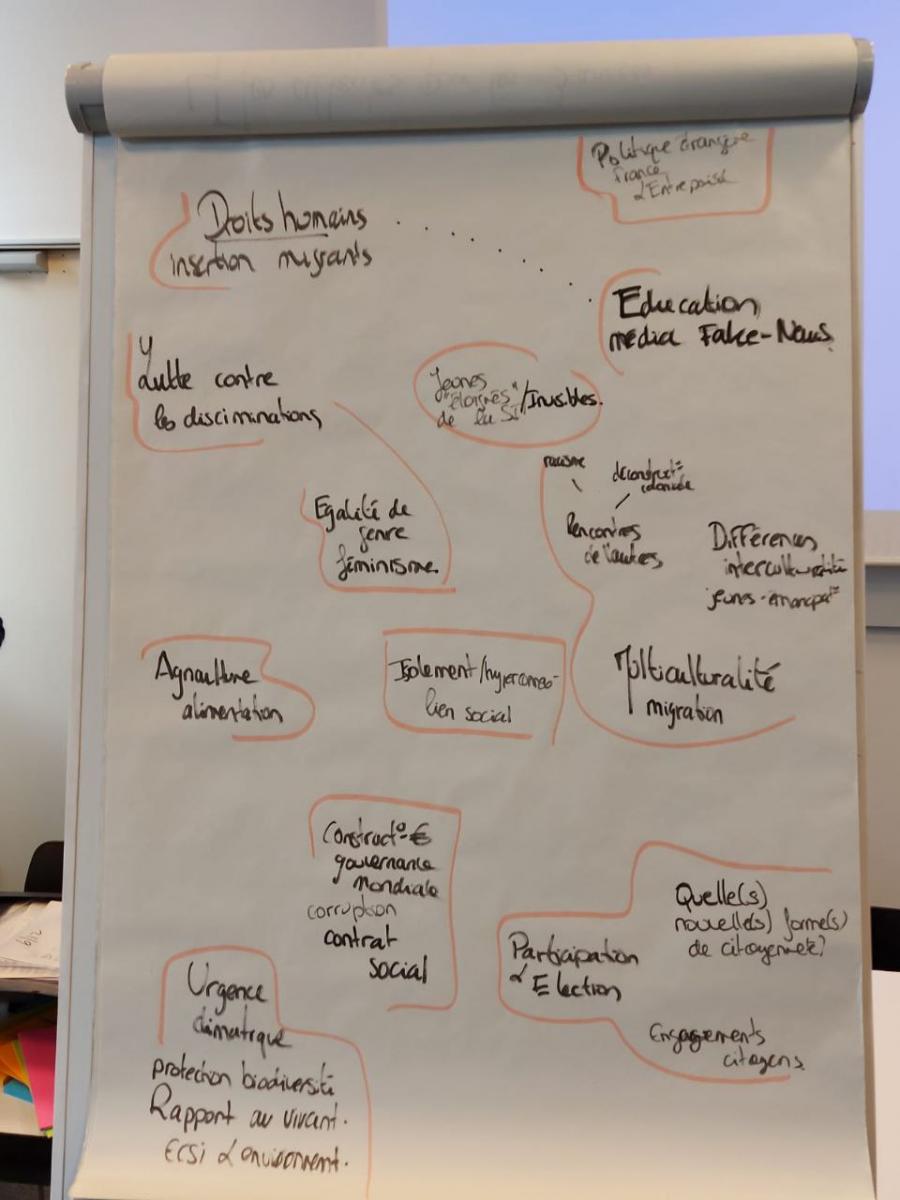 Politique étrangère
France
& Entreprise
Droits humains
insertion migrants
Education
média Fake-News
Lutte contre
les discriminations
Jeunes
"éloignés"/Invisibles.
de la SI
racisme
déconstruct°
coloniale
Egalité de
genre
féminisme
Rencontres
de l'autres
Différences
interculturalité
jeunes-émancipat°
Agriculture
alimentation
Isolement/hyperconnex°
lien social
Multiculturalité
migration
Construct° €
gouvernance
Mondiale
corruption
contrat
social
Quelle(s)
nouvelle(s) forme(s)
de citoyenneté?
Participation
& Election
Engagements
citoyens
Urgence
climatique
protection biodiversité
Rapport au vivant.
ECSI & environnent.